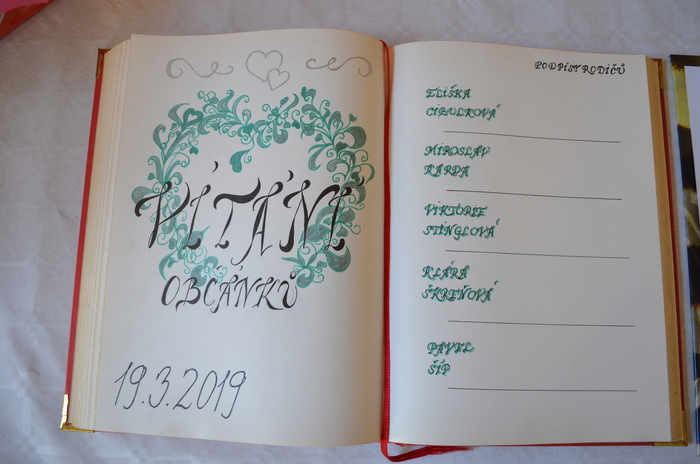 VÍTÁNÍ
OBČÁNKŮ
19.3.2019
PODPISY RODIČŮ
ELIŠKA
CIBULKOVÁ
MIROSLAV
KARPA
VIKTORIE
STINGLOVÁ
KLÁRA
ŠKREŇOVÁ
PAVEL
ŠÍP